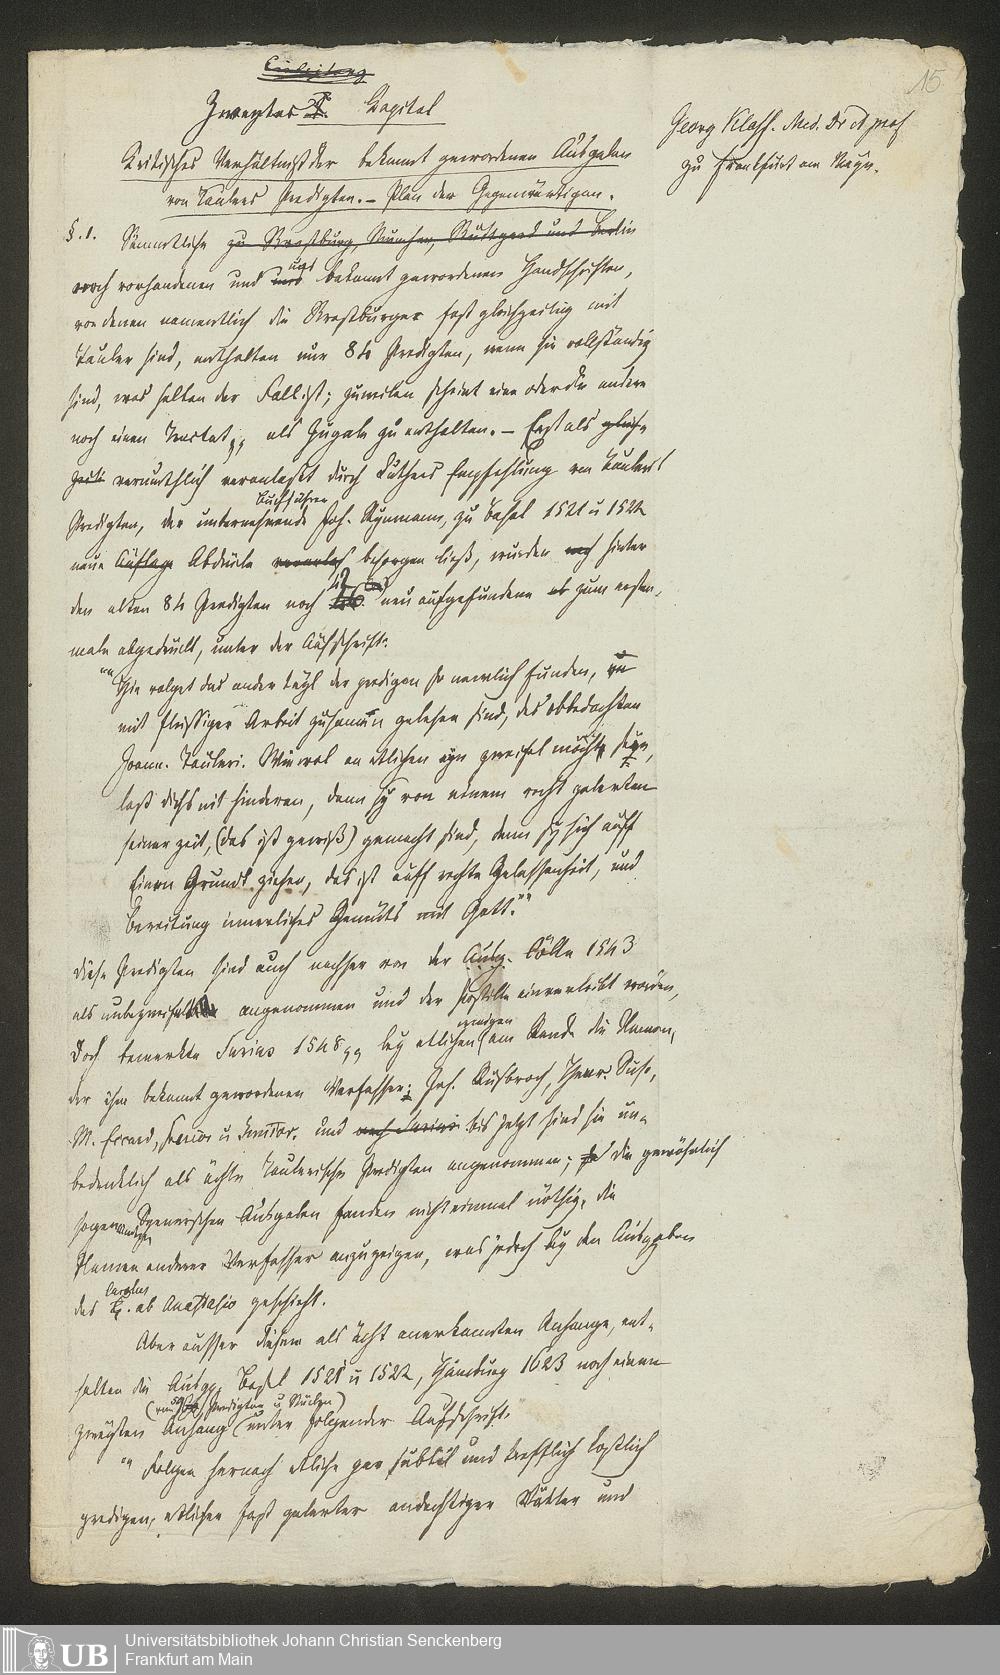 15
Einleitung
Zweytes Kapitel
Georg Kloß. Med. Dr et prof
zu Frankfurt am Mayn.
Kritisches Verhältniß der bekannt gewordenen Ausgaben
von Taulers Predigten. – Plan der Gegenwärtigen.
§. 1. Sämmtliche zu Straßburg, München, Stuttgard und Berlin
noch vorhandenen und uns bekannt gewordenen Handschriften,
von denen namentlich die Straßburger fast gleichzeitig mit
Tauler sind, enthalten nur 84 Predigten, wenn sie vollständig
sind, was selten der Fall ist; zuweilen scheint eine oder die andere
noch einen Tractat, als Zugabe zu enthalten. – Erst als
vermuthlich veranlaßt durch Luthers Empfehlung von Taulers
Predigten, der unternehmende Buchführer Joh. Rynmann, zu Basel 1521 u 1522
neue Auflage Abdrücke besorgen ließ, wurden noch hinter
den alten 84 Predigten noch 42 neu aufgefundene zum ersten-
male abgedruckt, unter der Aufschrift:
"Hie volget das ander teyl der predigen so neuwlich funden,
mit fleissiger Arbeit zusamen gelesen sind, des obbedachten
Joann. Tauleri. Wiewol an etlichen ein zweifel möchte seyn,
laß dichs nit hinderen, dann sy von einem recht gelerten
seiner zeit, (das ist gewiß) gemacht sind, denn sy sich auff
Einen Grundt ziehen, das ist auff rechte Gelassenheit, und
Bereitung innerliches Gemüts mit Gott."
Diese Predigten sind auch nachher von der Ausg. Cölln 1543
als unbezweifelt angenommen und der Postille einverleibt worden,
doch bemerkte Surius 1548, bey etlichen wenigen am Rande die Namen
der ihm bekannt gewordenen Verfasser: Joh. Rusbroch, Henr. Suso,
M. Eccard, und nach Surius bis jetzt sind sie un-
bedenklich als ächte Taulerische Predigten angenommen; die gewöhnlich
sogenannten Spenerschen Ausgaben fanden nicht einmal nöthig, die
Namen anderer Verfasser anzuzeigen, was jedoch bey den Ausgaben
des Carolus ab Anastasio geschieht.
Aber ausser diesem als ächt anerkannten Anhange, ent-
halten die Ausg. Basel 1521 u 1522, Hamburg 1623 noch einen
zweyten Anhang (von Predigten u Stücken) unter folgender Aufschrift:
"Folgen hernach etliche gar subtil und trefflich kostlich
predigen, etlicher fast gelerter andechtiger Vätter und
UB
Universitätsbibliothek Johann Christian Senckenberg
Frankfurt am Main